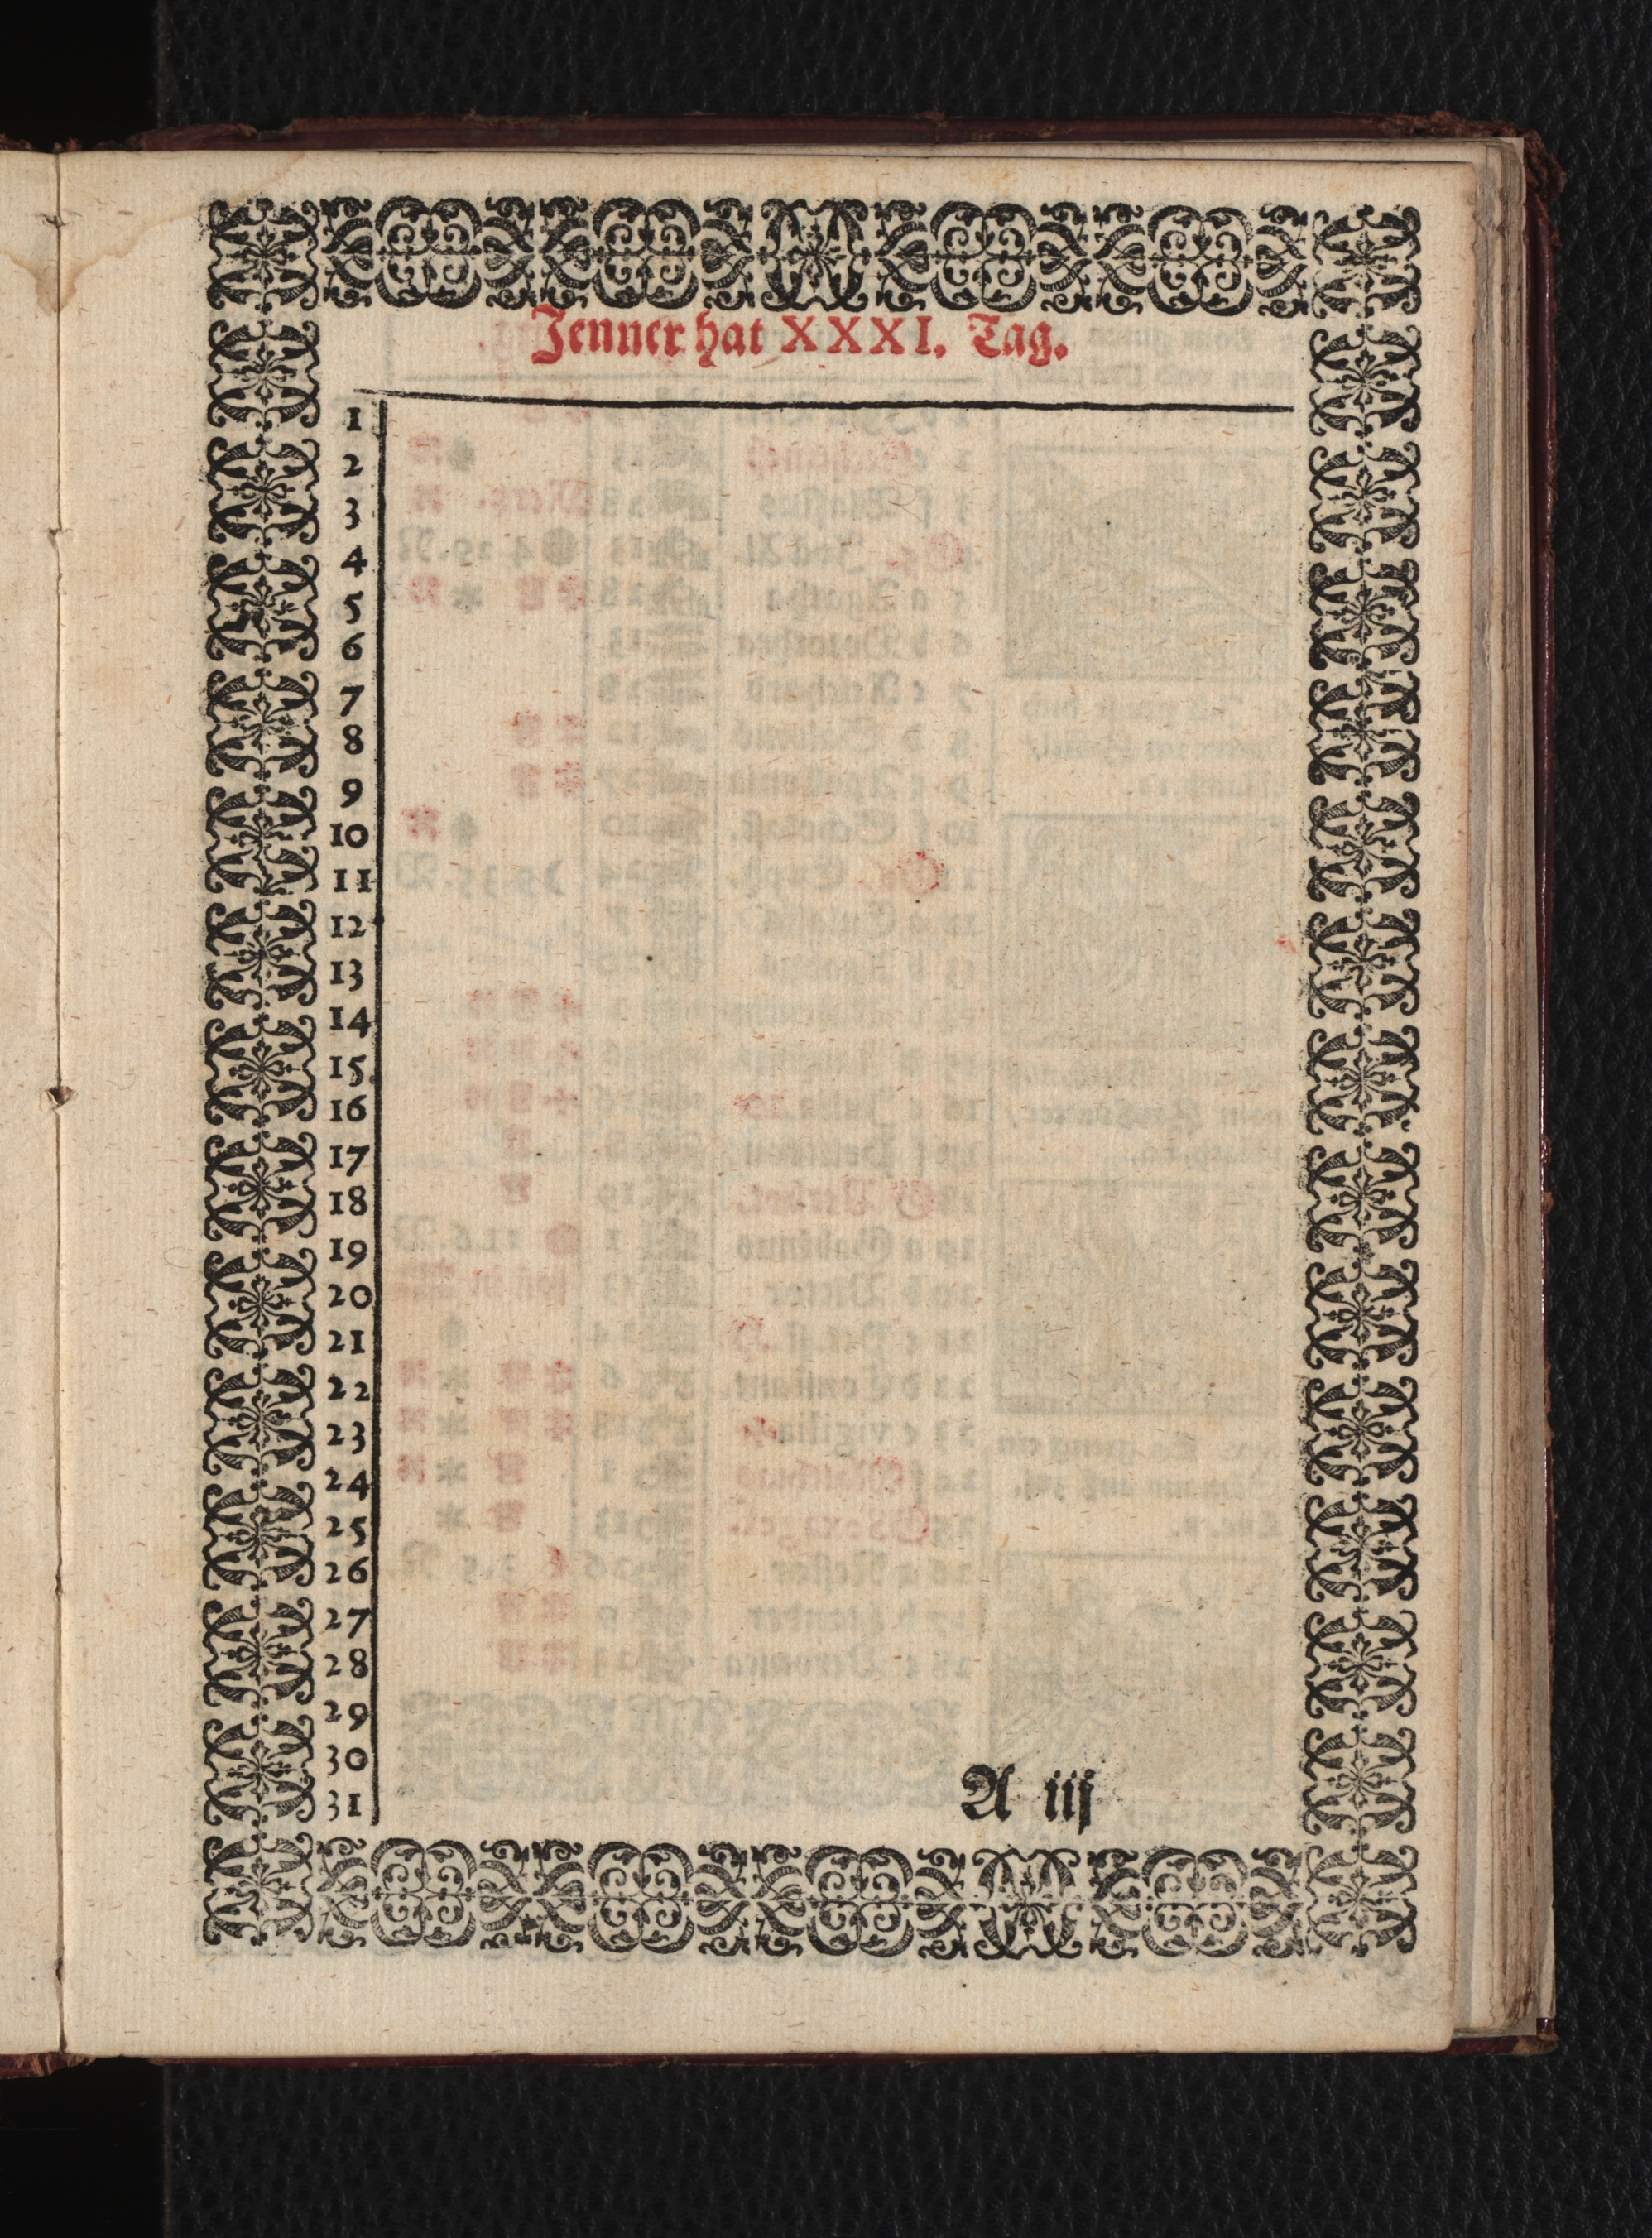 Jenner hat XXXI. Tag.
1
2
3
4
5
6
7
8
9
10
11
12
13
14
15
16
17
18
19
20
21
22
23
24
25
26
27
28
29
30
31
A iij